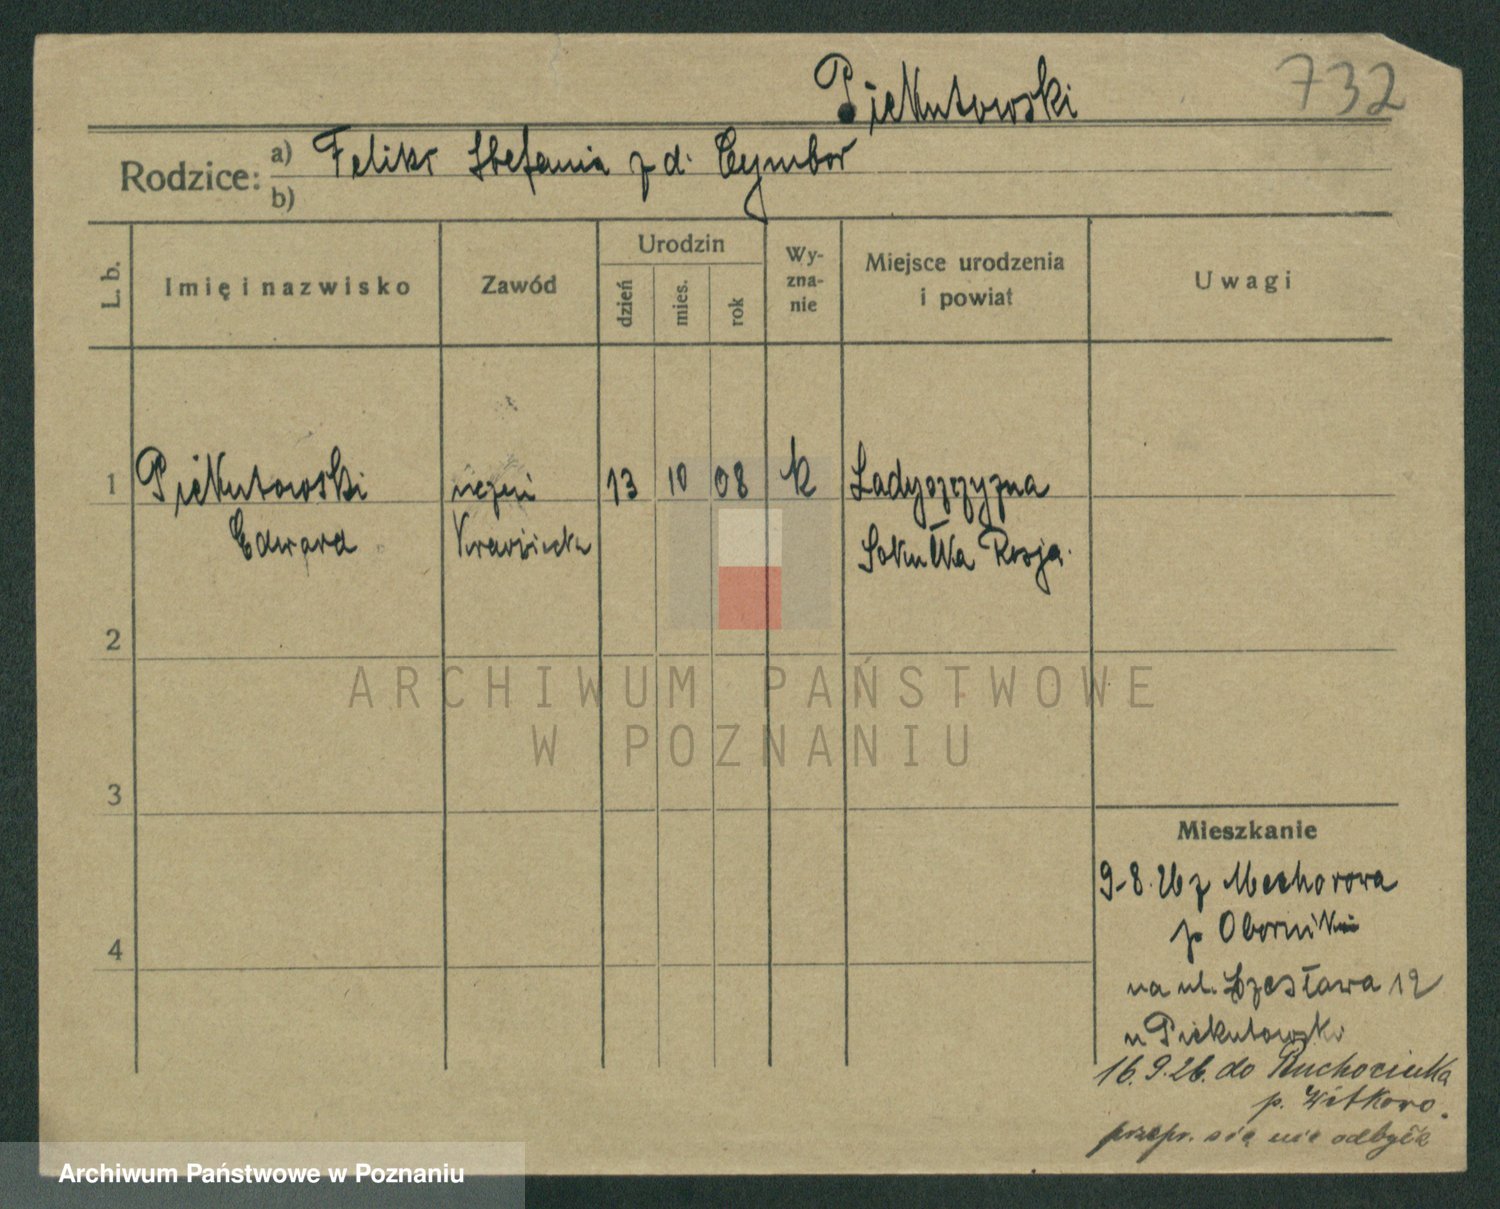 Piekutowski
732
Rodzice: a) Feliks Stefania z d. Cymbor
b)
L. b.
Imię i nazwisko
Zawód
Urodzin
dzień
mies.
rok
Wy-
zna-
nie
Miejsce urodzenia
i powiat
Uwagi
1 Piekutowski uczeń 13 10 08 k
Edward krawiecki
Sokułka Rosja.
2
3
4
ARCHIWUM PAŃSTWOWE
W POZNANIU
Mieszkanie
9-8.26 z
p Oborniki
na ul. Czesława 12
u Piekutowski
16.9.26. do Ruchocinka
p. Witkowo.
przepr. się nie odbyła
Archiwum Państwowe w Poznaniu